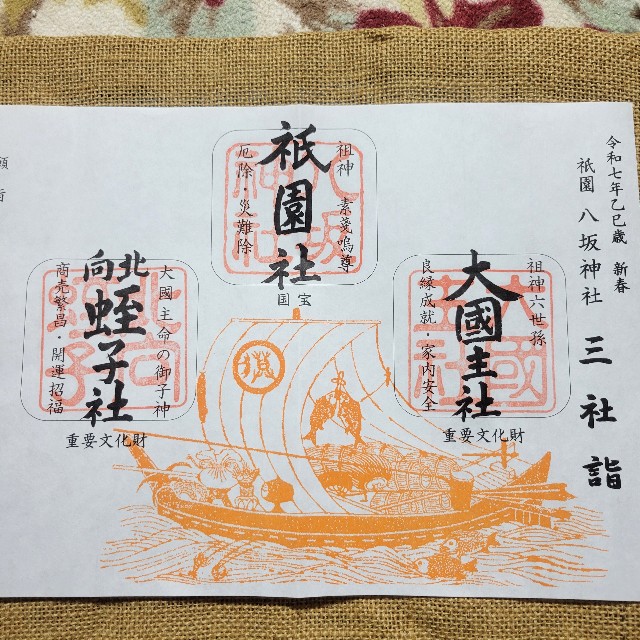 令和七年乙巳歳 新春
祇園 八坂神社 三社詣
大國主社
祖神六世孫
良縁成就・家内安全
大國主社
重要文化財
祇園社
祖神 素戔嗚尊
厄除・災難除
八坂神社
国宝
北向蛭子社
大國主命の御子神
商売繁昌・開運招福
重要文化財